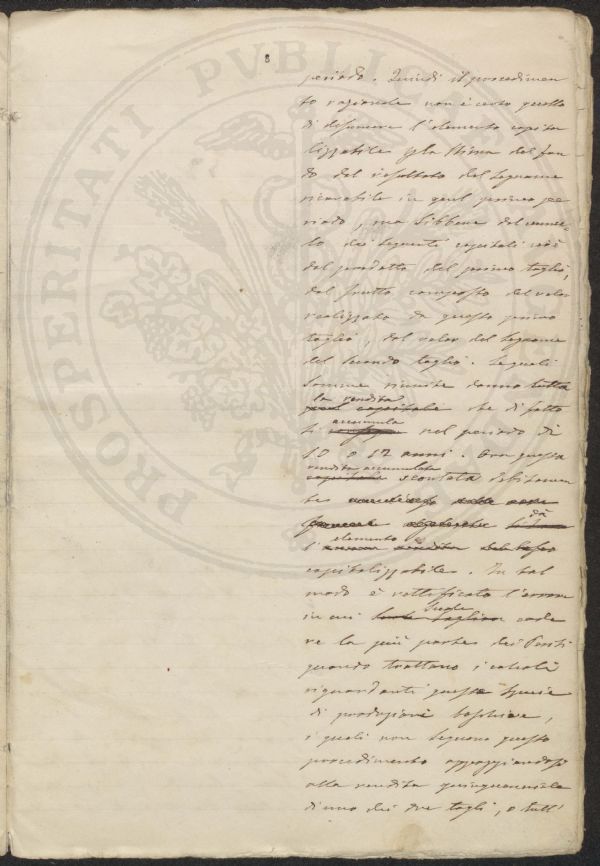 8
PROSPERITATI PVBLIC
periodo. Quindi il procedimen
to razionale non è certo quello
di desumere l'elemento capita
lizzabile p la stima del fon
do dal resultato del legname
ricavabile in quel primo pe
riodo, ma sibbene dal cumu-
lo dei seguenti capitali cioè
dal prodotto del primo taglio,
dal frutto composto del valor
realizzato da questo primo
taglio, dal valor del legname
del secondo taglio. Le quali
somme riunite danno tutta
la rendita
capitale che di fatto
accumula
si nel periodo di
10 o 12 anni. Ora questa
rendita accumulata
capitale scontata debitamen
te
dà
elemento
l'
capitalizzabile. In tal
modo è rettificato l'errore
suole
in cui cade
re la più parte dei Periti
quando trattano i calcoli
riguardanti questa specie
di produzioni boschive,
i quali non seguono questo
procedimento appoggiandosi
alla rendita quinquennale
di uno dei due tagli, o tutt'